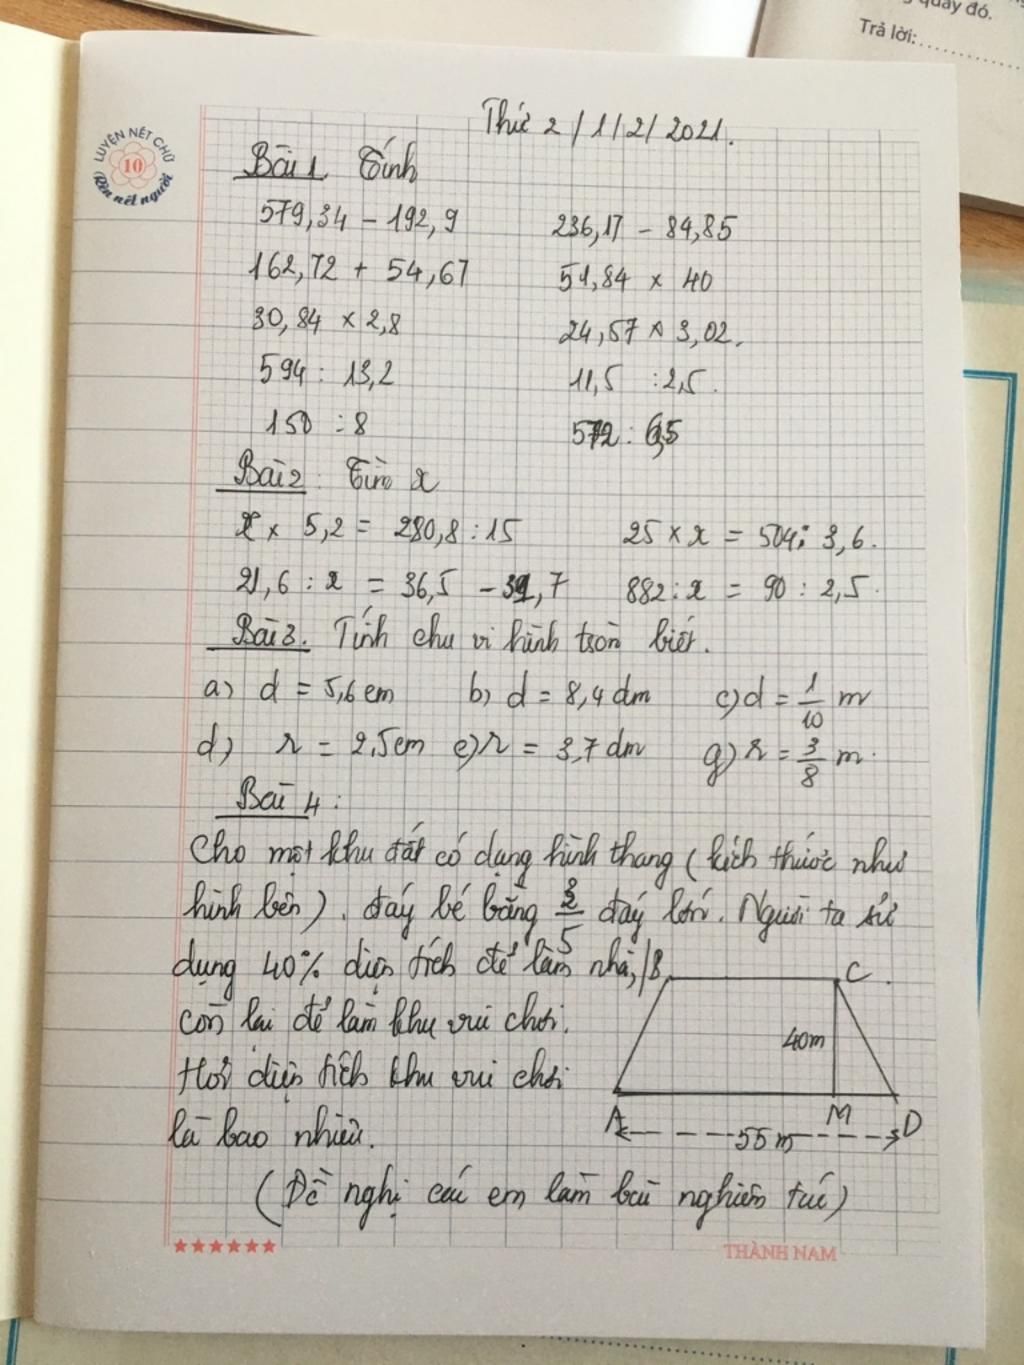 g quay đó.
Trả lời:
LUYỆN NÉT CHỮ
10
Rèn nết người
Thứ 2/1/2/2021.
Bài 1 Tính
579,34 - 192,9    236,17 - 84,85
162,72 + 54,67    51,84 x 40
30,84 x 2,8    24,57 x 3,02.
594 : 13,2    11,5 : 2,5.
150 : 8    572 : 6,5
Bài 2: Tìm x
x x 5,2 = 280,8 : 15    25 x x = 504 : 3,6.
21,6 : x = 36,5 - ,7    882 : x = 90 : 2,5.
Bài 3. Tính chu vi hình tròn biết.
a) d = 5,6 cm    b) d = 8,4 dm    c) d = 1/10 m
d) r = 2,5cm    e) r = 3,7 dm    g) r = 3/8 m.
Bài 4:
Cho một khu đất có dạng hình thang (kích thước như
hình bên). đáy bé bằng /5 đáy lớn. Người ta sử
dụng 40% diện tích để làm nhà,
còn lại để làm khu vui chơi.
Hỏi diện tích khu vui chơi
là bao nhiêu.
B    C
40m
A    M    D
55 m
(Đề nghị các em làm bài nghiêm túc)
★★★★★★    THÀNH NAM